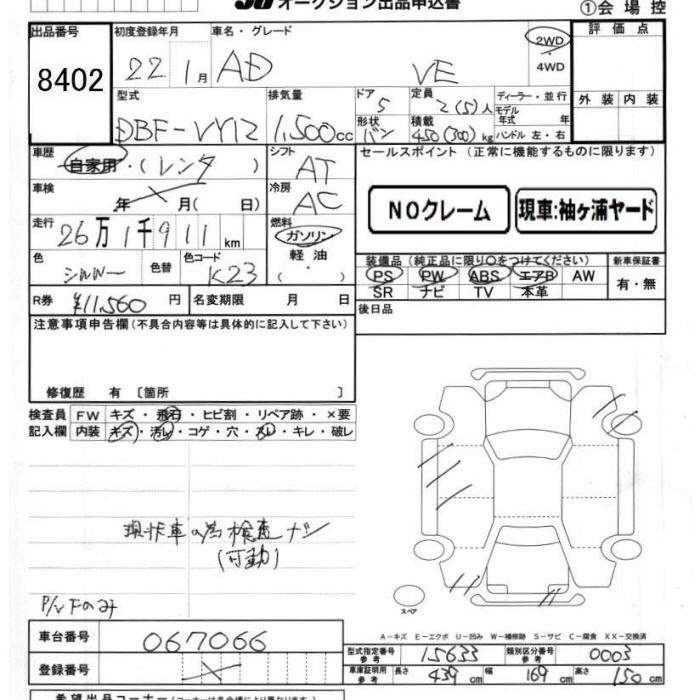 オークション出品申込書
①会場控
出品番号 初度登録年月 車名・グレード 2WD 評価点
8402 22 1月 AD VE 4WD
型式 排気量 ドア 定員 ディーラー・並行 外装 内装
DBF-VY12 1,500cc 5 2(5)人 モデル年式 年
形状 積載 バン 450(300)kg ハンドル 左・右
車歴 シフト セールスポイント (正常に機能するものに限ります)
自家用・(レンタ) AT
車検 冷房 NOクレーム 現車:袖ヶ浦ヤード
年 月( 日) AC
走行 燃料
26万1千911km ガソリン
色 色替 色コード 軽油 装備品(純正品に限り○をつけてください) 新車保証書
シルバー K23 ( ・ ) PS PW ABS エアB AW 有・無
SR ナビ TV 本革
R券 ¥11,560円 名変期限 月 日 後日品
注意事項申告欄(不具合内容等は具体的に記入して下さい)
修復歴 有 〔箇所 〕
検査員 FW キズ・飛石・ヒビ割・リペア跡・×要
記入欄 内装 キズ・汚レ・コゲ・穴・スレ・キレ・破レ
現状車の為検査ナシ
(可動)
P/Vドのみ
スペア
A-キズ E-エクボ U-凹み W-補修跡 S-サビ C-腐食 XX-交換済
車台番号 067066 型式指定番号 参考 15633 類別区分番号 参考 0003
登録番号 車庫証明用 参考 長さ 439cm 幅 169cm 高さ 150cm
希望出品コーナー